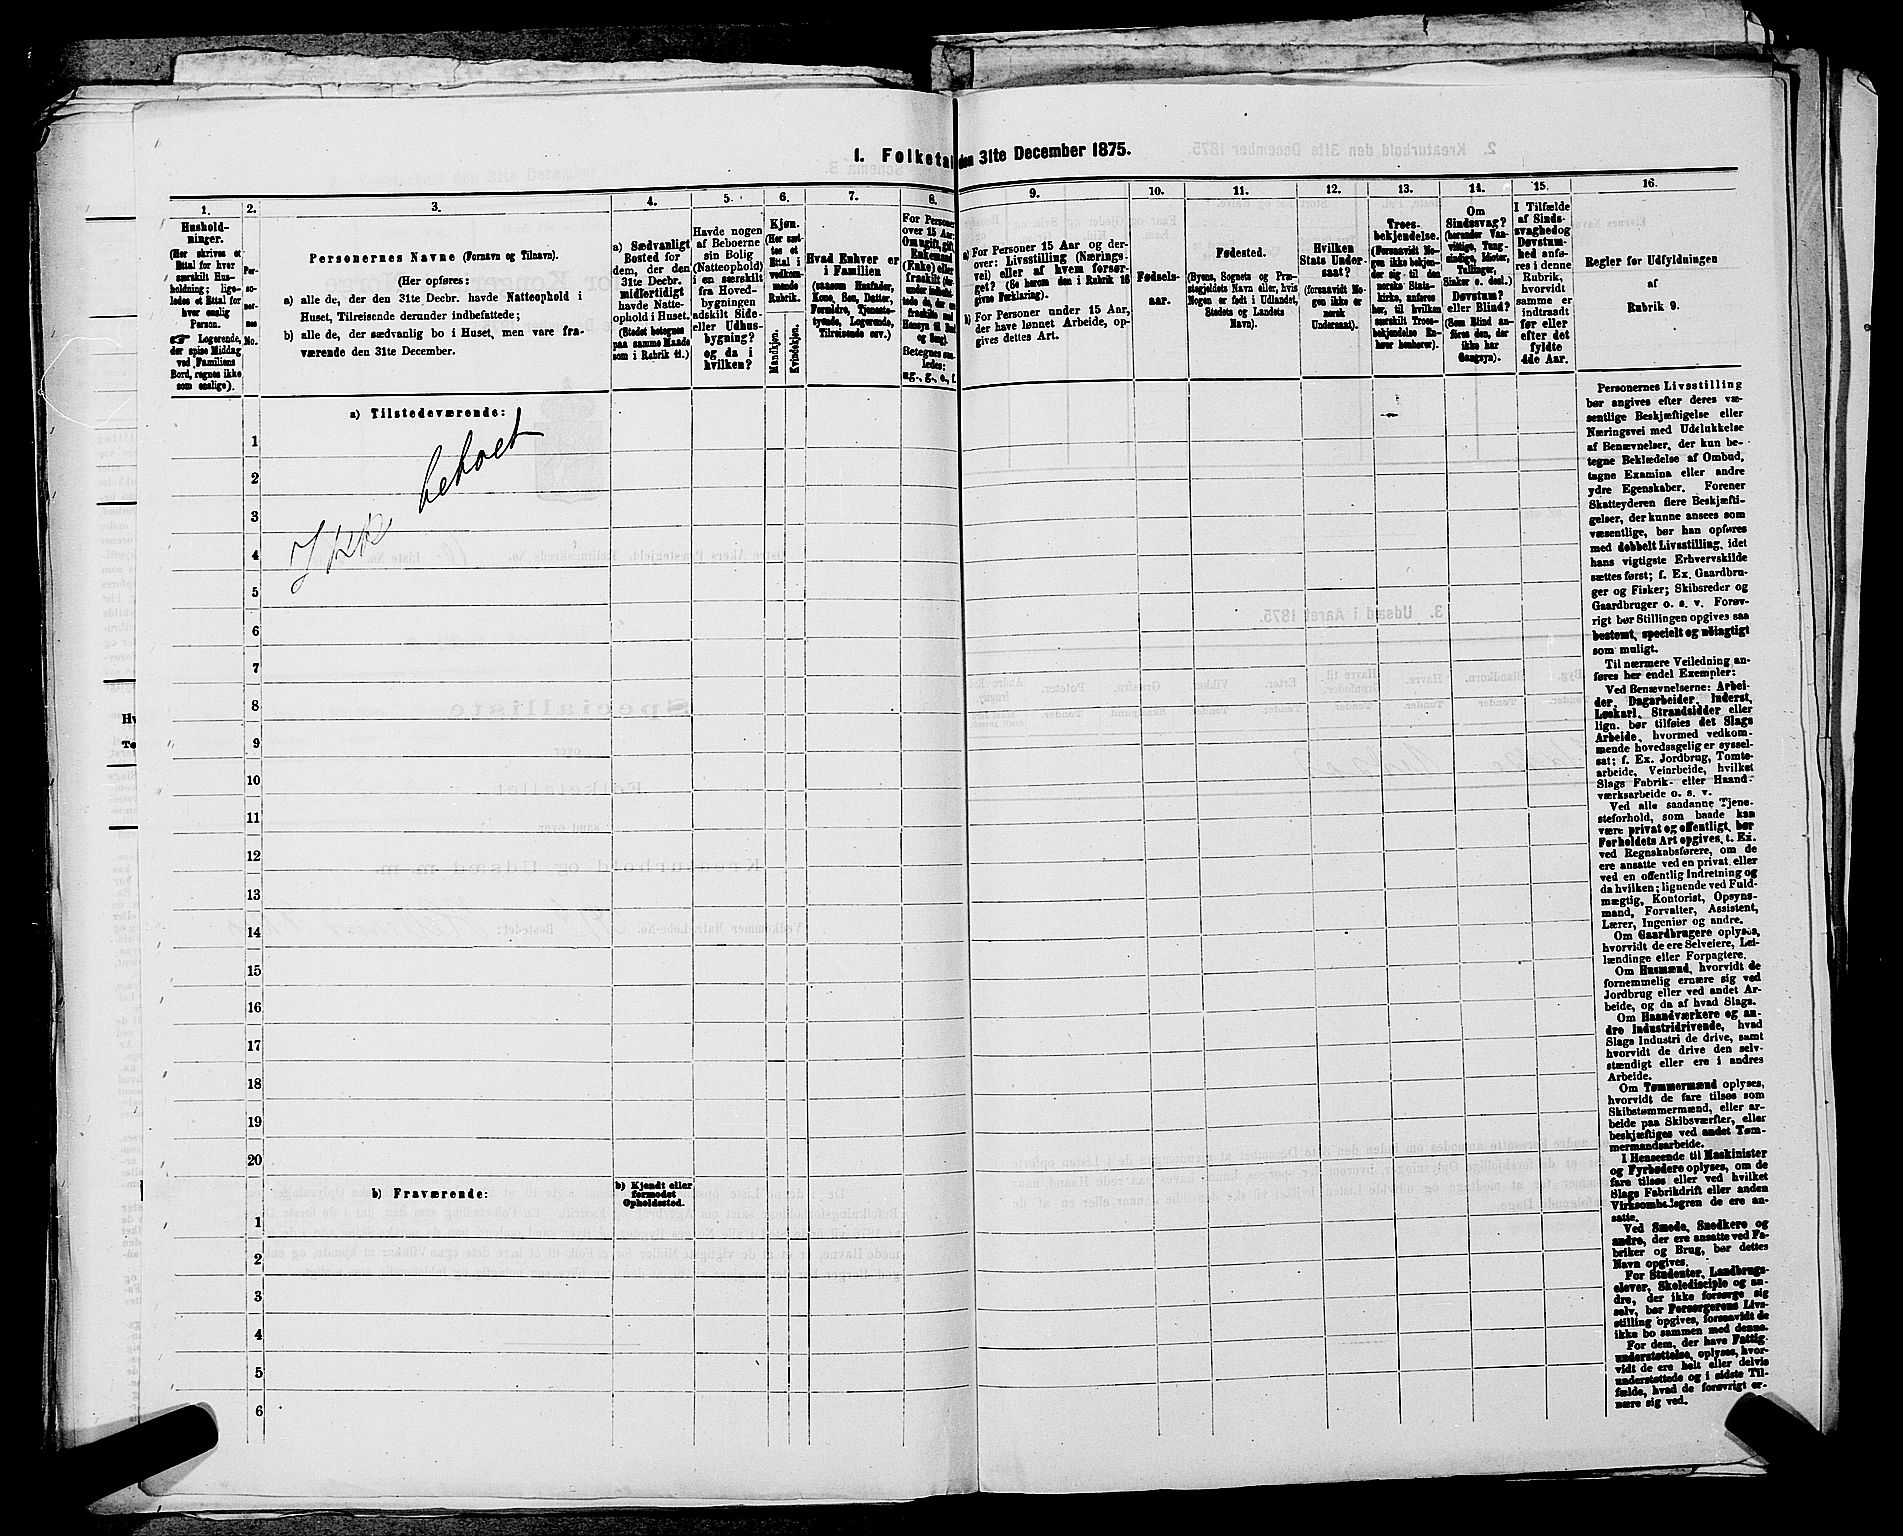 1. Folketal den 31te December 1875.
1.
Hushold-
ninger.
(Her skrives et
Ettal for hver
særskilt Hus-
holdning; lige-
ledes et Ettal for
hver enslig
Person.
☞ Logerende,
der spise Middag
ved Familiens
Bord, regnes ikke
som enslige).
2.
Per-
so-
ner-
nes
No.
3.
Personernes Navne (Fornavn og Tilnavn).
(Her opføres:
a) alle de, der den 31te Decbr. havde Natteophold i
Huset, Tilreisende derunder indbefattede;
b) alle de, der sædvanlig bo i Huset, men vare fra-
værende den 31te December.
4.
a) Sædvanligt
Bosted for
dem, der den
31te Decbr.
midlertidigt
havde Natte-
ophold i Huset.
(Stedet betegnes
paa samme Maade
som i Rubrik 11.)
5.
Havde nogen
af Beboerne
sin Bolig
(Natteophold)
i en særskilt
fra Hoved-
bygningen
adskilt Side-
eller Udhus-
bygning?
og da i
hvilken?
6.
Kjøn.
(Her sæt-
tes et
Ettal i
vedkom-
mende
Rubrik.
Mandkjøn.
Kvindekjøn.
7.
Hvad Enhver er
i Familien
(saasom Husfader,
Kone, Søn, Datter,
Forældre, Tjeneste-
tyende, Logerende,
Tilreisende osv.)
8.
For Personer
over 15 Aar:
Om ugift, gift,
Enkemand
(Enke) eller
fraskilt
Betegnes saa-
ledes:
ug., g., e., f.
9.
a) For Personer 15 Aar og der-
over: Livsstilling (Nærings-
vei) eller af hvem forsør-
get? (Se herom den i Rubrik 16
givne Forklaring).
b) For Personer under 15 Aar,
der have lønnet Arbeide, op-
gives dettes Art.
10.
Fødsels-
aar.
11.
Fødested.
(Byens, Sognets og Præ-
stegjeldets Navn eller, hvis
Nogen er født i Udlandet,
Stedets og Landets
Navn).
12.
Hvilken
Stats Under-
saat?
(forsaavidt No-
gen ikke er
norsk
Undersaat).
13.
Troes-
bekjendelse.
(Forsaavidt No-
gen ikke bekjen-
der sig til den
norske Stats-
kirke, anføres
her, til hvilken
særskilt Troes-
bekjendelse En-
hver henhører).
14.
Om
Sindssvag?
(herunder Van-
vittige, Tung-
sindige, Idioter,
Tullinger,
Sinker o. desl.)
Døvstum?
eller Blind?
(Som Blind an-
føres den, der
ikke har
Gangsyn).
15.
I Tilfælde
af Sinds-
svaghed og
Døvstum-
hed anfø-
res i denne
Rubrik,
hvorvidt
samme er
indtraadt
før eller
efter det
fyldte
4de Aar.
16.
Regler før Udfyldningen
af
Rubrik 9.
a) Tilstedeværende:
Ikke beboet
1
2
3
4
5
6
7
8
9
10
11
12
13
14
15
16
17
18
19
20
b) Fraværende:
b) Kjendt eller
formodet
Opholdssted.
1
2
3
4
5
6
Personernes Livsstilling
bør angives efter deres væ-
sentlige Beskjæftigelse eller
Næringsvei med Udelukkelse
af Benævnelser, der kun be-
tegne Beklædelse af Ombud,
tagne Examina eller andre
ydre Egenskaber. Forener
Skatteyderen flere Beskjæfti-
gelser, der kunne ansees som
væsentlige, bør han opføres
med dobbelt Livsstilling, idet
hans vigtigste Erhvervskilde
sættes først; f. Ex. Gaardbru-
ger og Fisker; Skibsreder og
Gaardbruger o. s. v. Forøv-
rigt bør Stillingen opgives saa
bestemt, specielt og nøiagtigt
som muligt.
Til nærmere Veiledning an-
føres her endel Exempler:
Ved Benævnelserne: Arbei-
der, Dagarbeider, Inderst,
Løskarl, Strandsidder eller
lign. bør tilføies det Slags
Arbeide, hvormed vedkom-
mende hovedsagelig er syssel-
sat; f. Ex. Jordbrug, Tomte-
arbeide, Veiarbeide, hvilket
Slags Fabrik- eller Haand-
værksarbeide o. s. v.
Ved alle saadanne Tjene-
steforhold, som baade kan
være privat og offentligt, bør
Forholdets Art opgives, t. Ex.
ved Regnskabsførere, om de
ere ansatte ved en privat eller
ved en offentlig Indretning og
da hvilken; lignende ved Fuld-
mægtig, Kontorist, Opsyns-
mand, Forvalter, Assistent,
Lærer, Ingeniør og andre.
Om Gaardbrugere oplyses,
hvorvidt de ere Selveiere, Lei-
lændinge eller Forpagtere.
Om Husmænd, hvorvidt de
fornemmelig ernære sig ved
Jordbrug eller ved andet Ar-
beide, og da af hvad Slags.
Om Haandværkere og an-
dre Industridrivende, hvad
Slags Industri de drive, samt
hvorvidt de drive den selv-
stændigt eller ere i andres
Arbeide.
Om Tømmermænd oplyses,
hvorvidt de fare tilsøs som
Skibstømmermænd, eller ar-
beide paa Skibsværfter, eller
beskjæftiges ved andet Tøm-
mermandsarbeide.
I Henseende til Maskinister
og Fyrbødere oplyses, om de
fare tilsøs eller ved hvilket
Slags Fabrikdrift eller anden
Virksomhedsgren de ere an-
satte.
Ved Smede, Snedkere og
andre, der ere ansatte ved Fa-
briker og Brug, bør dettes
Navn opgives.
For Studenter, Landbrugs-
elever, Skoledisciple og an-
dre, der ikke forsørge sig
selv, bør Forsørgerens Livs-
stilling opgives, forsaavidt de
ikke bo sammen med denne.
For dem, der have Fattig-
understøttelse, oplyses, hvor-
vidt de ere helt eller delvis
understøttede og i sidste Til-
fælde, hvad de forøvrigt er-
nære sig ved.